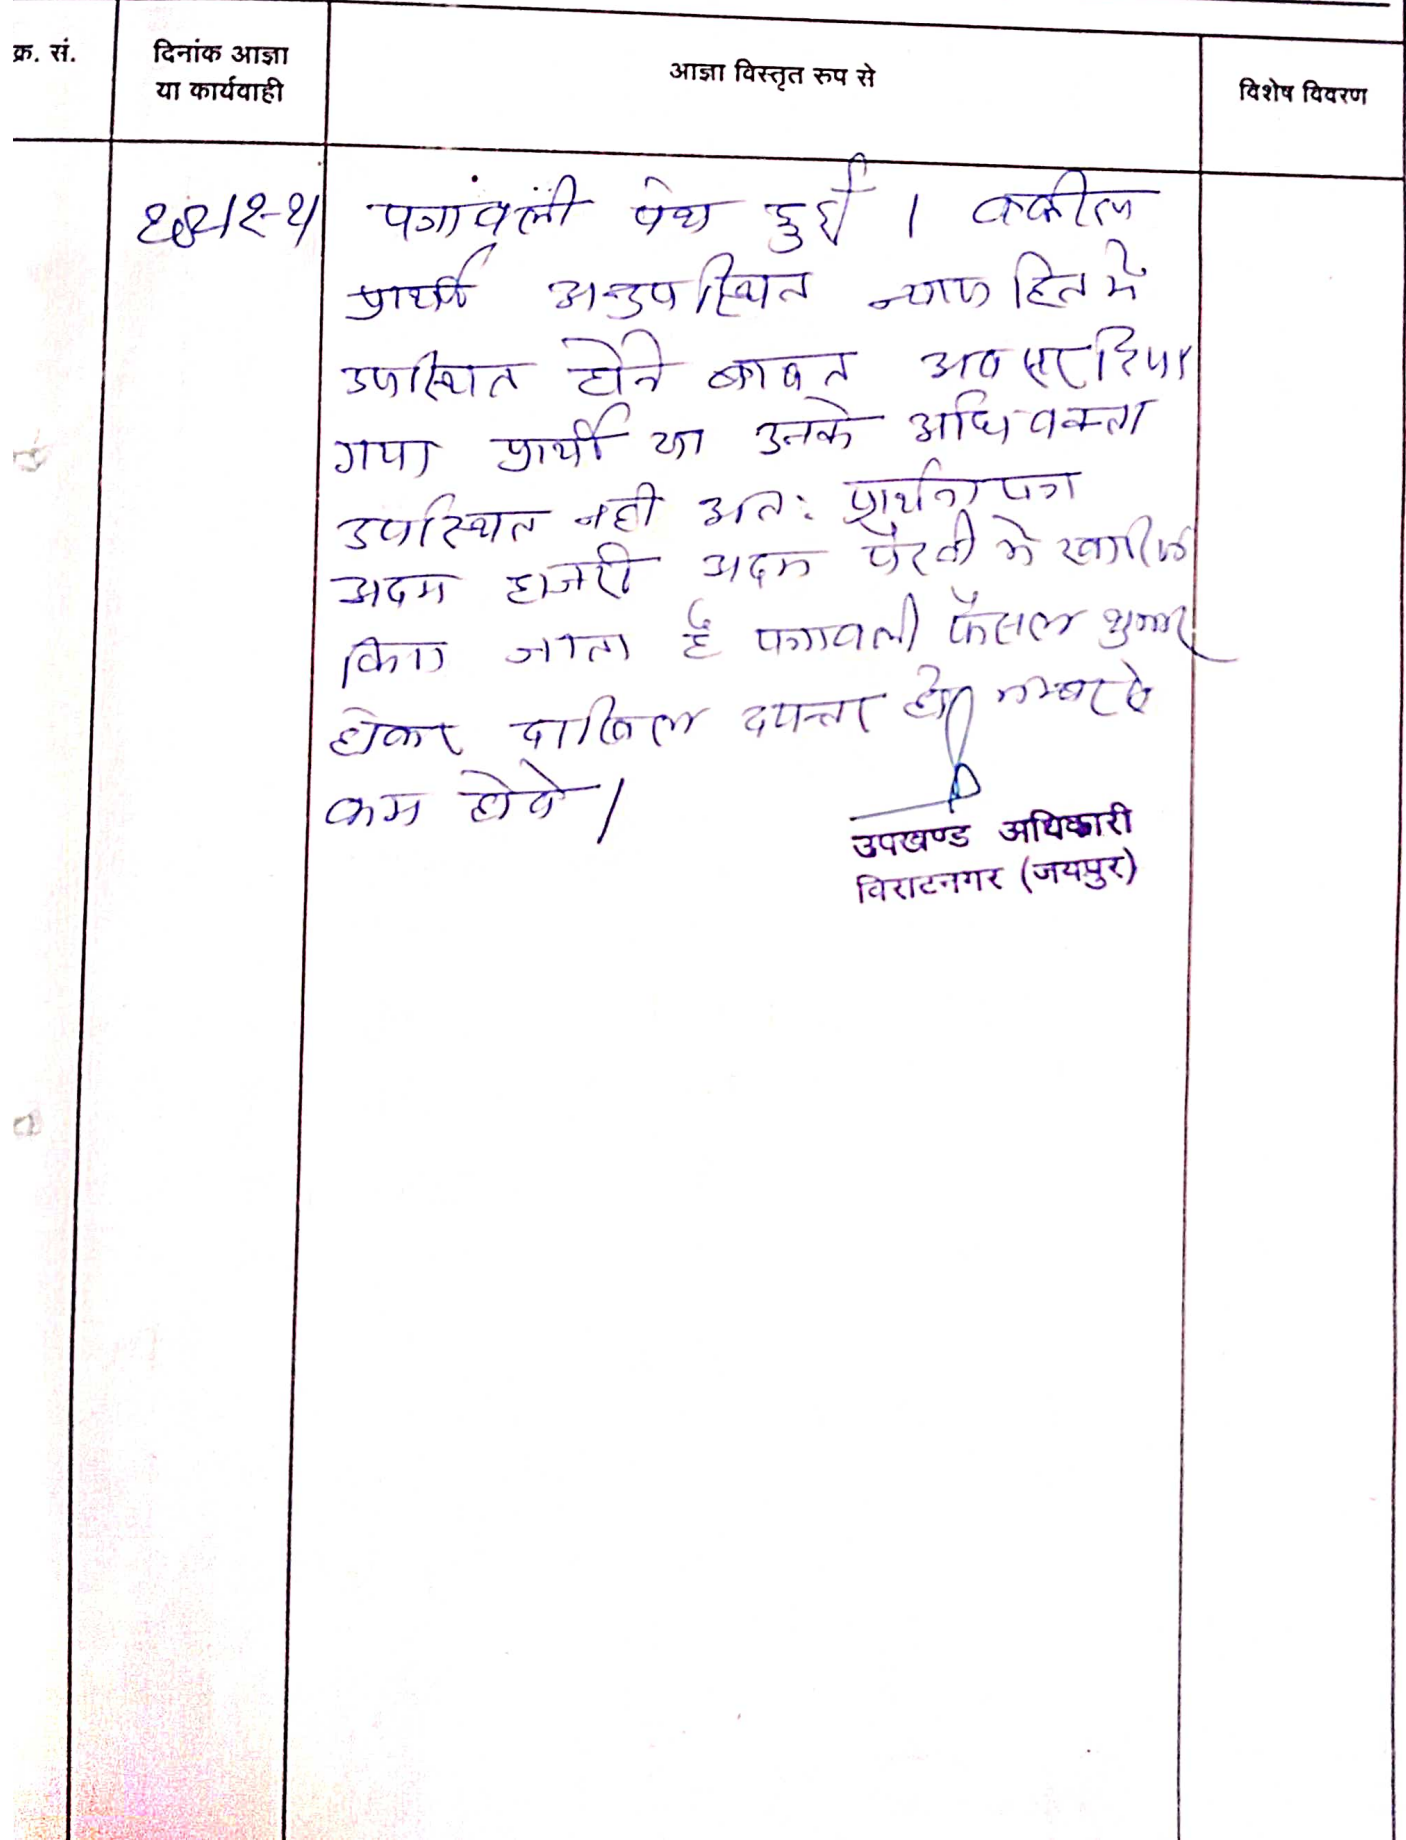 क्र. सं.
दिनांक आज्ञा
या कार्यवाही
आज्ञा विस्तृत रुप से
विशेष विवरण
पत्रावली पेश हुई । वकील
प्रार्थी अनुपस्थित न्याय हित में
उपस्थित होने बाबत अवसर दिया
गया प्रार्थी या उनके अधिवक्ता
उपस्थित नही अतः प्रार्थना पत्र
अदम हाजरी अदम पैरवी मे खारिज
किया जाता है पत्रावली फैसल शुमार
होकर दाखिल दफ्तर हो नम्बर से
कम होवे ।
उपखण्ड अधिकारी
विराटनगर (जयपुर)